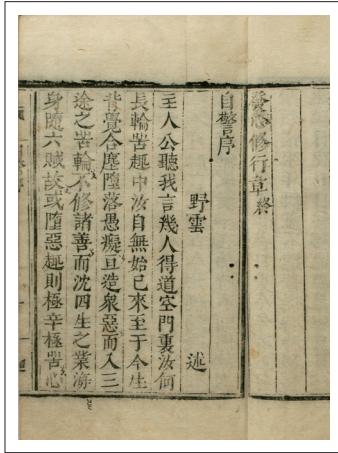 發心修行章 終
自警序
野雲 述
主人公聽我言幾人得道空門裏汝何
長輪苦趣中汝自無始已來至于今生
背覺合塵墮落愚癡旦造衆惡而入三
途之苦輪不修諸善而沈四生之業海
身隨六賊故或墮惡趣則極辛極苦心